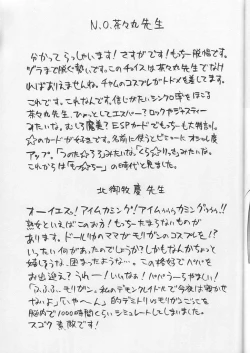 N.O.茶々丸先生
分かってらっしゃいます！さすがです！もっちー脱帽です。
ヅラまで脱ぐ勢いです。このチョイスは茶々丸先生でなけ
ればおりえませんね。チャムのコスプレがトドメを差してます。
これです。これなんです。信じがたいシンクロ率をほこる
茶々丸先生。ひょっとしてエスパー？ロックやジャスティー
みたいな。むしろ魔美？ESPカードでもっちーも大判別。
☆のカードが好きです。名前に使うとビミョーにオッシャレ度
アップ。「つのだ☆ひろ」みたいな。「くらら☆り」もみたいな。
これからは「もっ☆ちー」の時代と見ました。
北御牧慶先生
オーイエスッ！アイムカミング！アイムカミングッ!!!
熟女といえばこのお方！もっちーたまらないものが
あります。ドールの のママがモリガンのコスプレを!?
いったい何があったのでしょうか？かもなんかちょっと
嬉しそうな、困ったような…。この格好でパパを
お出迎え？うわー！いいなあ！パパうーらやましい！
「ふふふ…モリガン。私のデモンクレイドルで今夜は寝かせ
ないよ」「いや～ん」的デミトリとモリガンごっこを
脳内で1000時間くらいシミュレートしてしまいました。
スゴク素敵です！